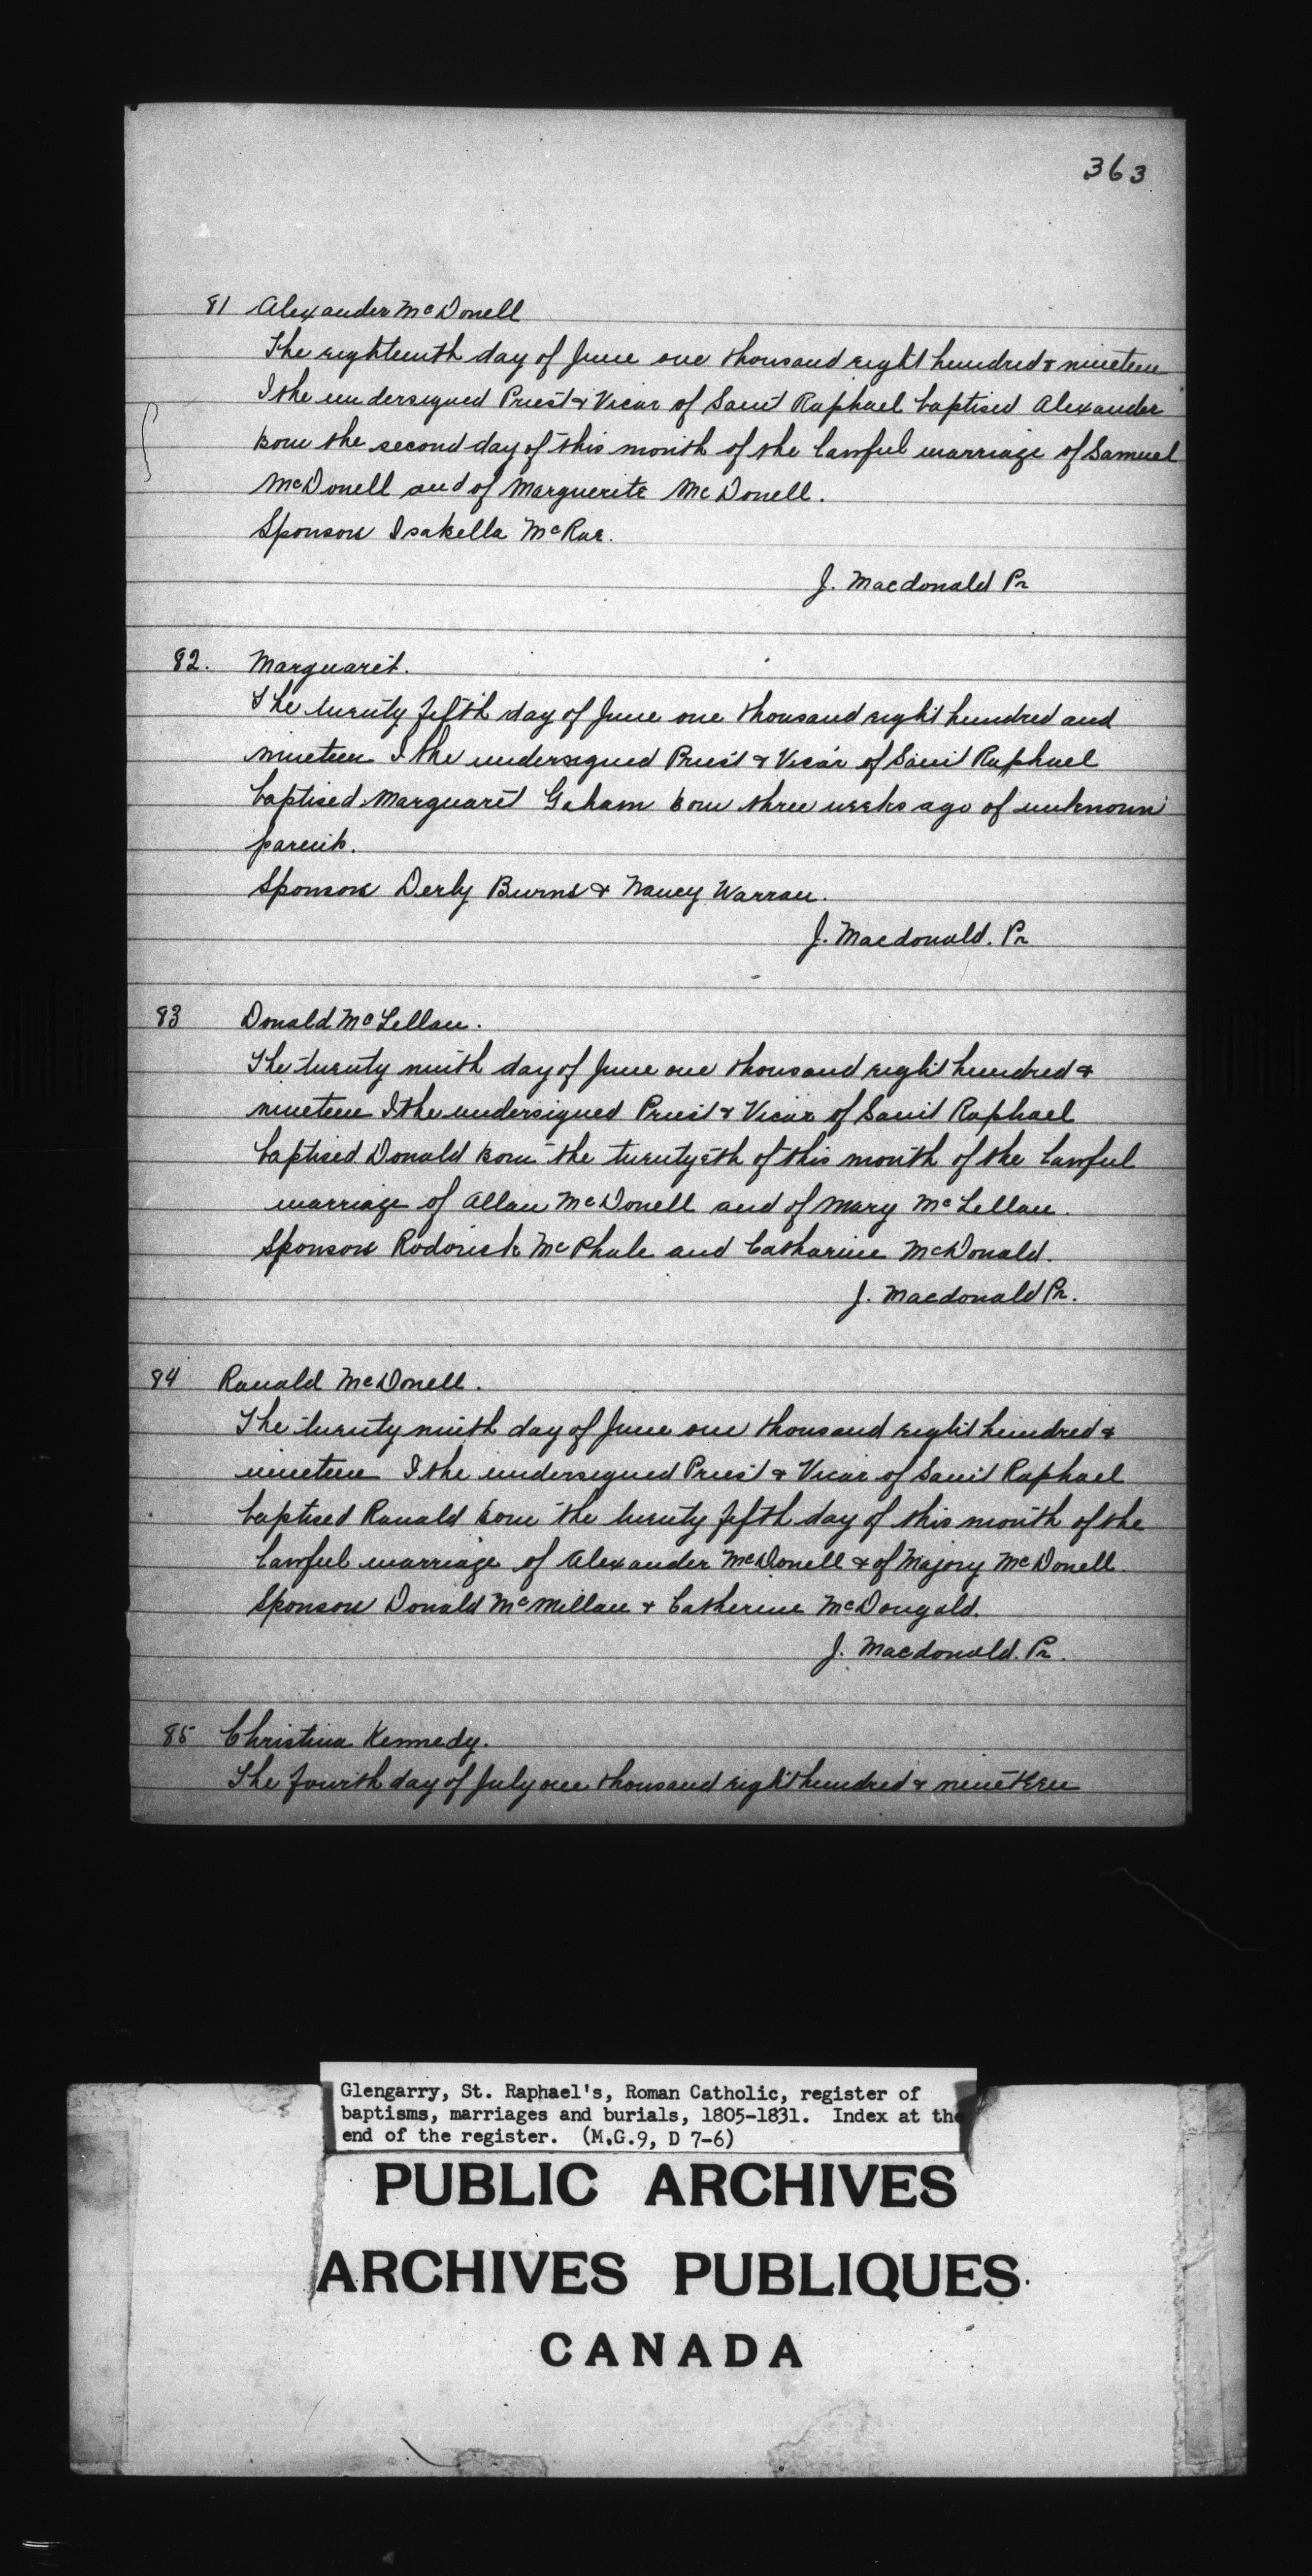 363
81 Alexander McDonell
The eighteenth day of June one thousand eight hundred & nineteen
I the undersigned Priest & Vicar of Saint Raphael baptised Alexander
born the second day of this month of the lawful marriage of Samuel
McDonell and of Marguerite McDonell.
Sponsors Isabella McRae.
J. Macdonald Pr
82. Marguarit.
The twenty fifth day of June one thousand eight hundred and
nineteen I the undersigned Priest & Vicar of Saint Raphael
baptised Marguaret Gaham born three weeks ago of unknown
parents.
Sponsors Derby Burns & Nancy Warran.
J. Macdonald. Pr
83 Donald McLellan.
The twenty ninth day of June one thousand eight hundred &
nineteen I the undersigned Priest & Vicar of Saint Raphael
baptised Donald born the twentyeth of this month of the lawful
marriage of Allan McDonell and of Mary McLellan.
Sponsors Rodorick McPhale and Catharine McDonald.
J. Macdonald Pr.
84 Ranald McDonell.
The twenty ninth day of June one thousand eight hundred &
nineteen I the undersigned Priest & Vicar of Saint Raphael
baptised Ranald born the twenty fifth day of this month of the
lawful marriage of Alexander McDonell & of Majory McDonell.
Sponsors Donald McMillan & Catherine McDougald.
J. Macdonald. Pr.
85 Christina Kennedy.
The fourth day of July one thousand eight hundred & nineteen
Glengarry, St. Raphael's, Roman Catholic, register of
baptisms, marriages and burials, 1805-1831. Index at the
end of the register. (M.G.9, D 7-6)
PUBLIC ARCHIVES
ARCHIVES PUBLIQUES
CANADA